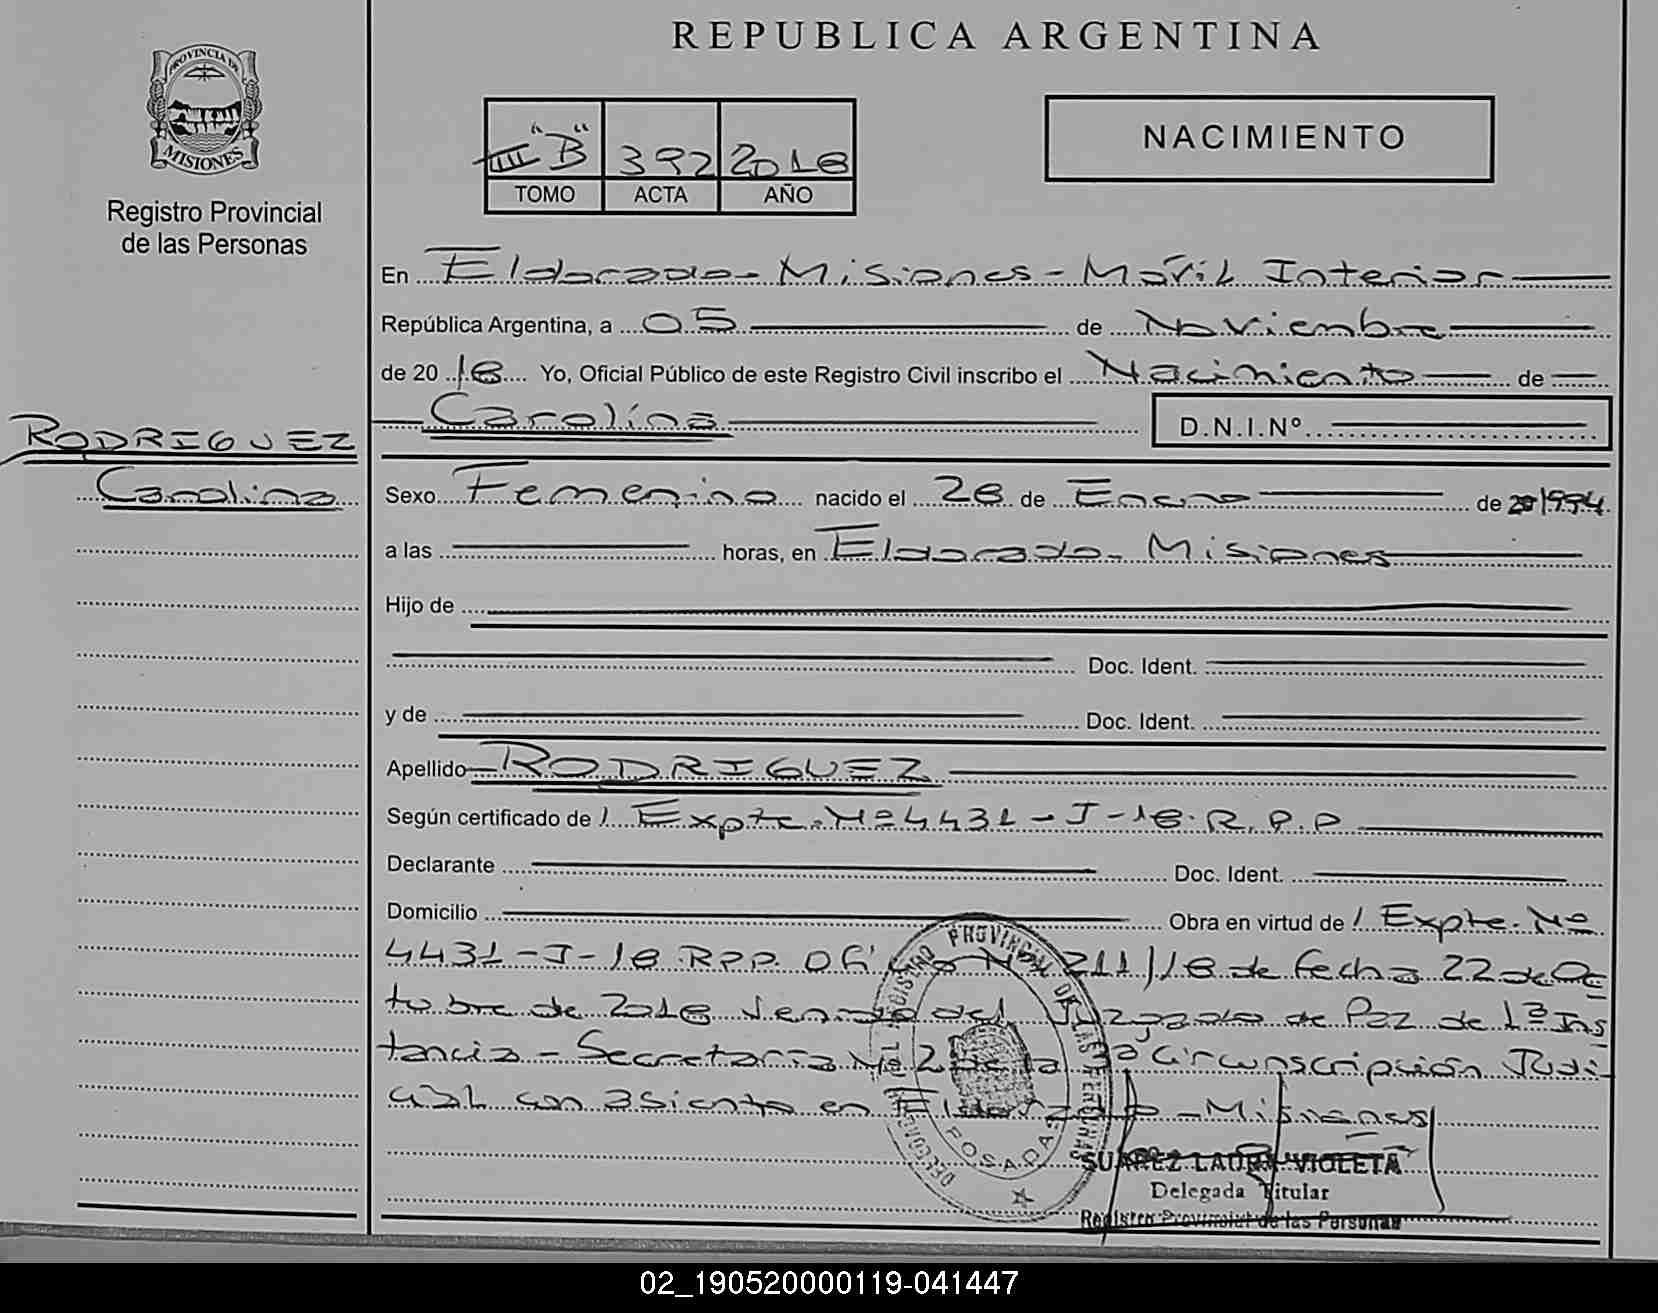 REPUBLICA ARGENTINA
PROVINCIA DE
MISIONES
Registro Provincial
de las Personas
III "B" 392 2018
TOMO ACTA AÑO
NACIMIENTO
En Eldorado - Misiones - Móvil Interior
República Argentina, a 05 de Noviembre
de 2018 Yo, Oficial Público de este Registro Civil inscribo el Nacimiento de
Carolina D.N.I.Nº
RODRIGUEZ
Carolina
Sexo Femenino nacido el 28 de Enero de 20 1994.
a las horas, en Eldorado - Misiones
Hijo de
Doc. Ident.
y de Doc. Ident.
Apellido RODRIGUEZ
Según certificado de / Expte. Nº 4431-J-18. R.P.P
Declarante Doc. Ident.
Domicilio Obra en virtud de / Expte. Nº
4431-J-18 RPP. Oficio Nº 211/18 de fecha 22 de Oc
tubre de 2018 venido del Juzgado de Paz de 1ª Ins
tancia - Secretaría Nº 2 de la 3ª Circunscripción Judi-
cial con asiento en Eldorado - Misiones
REGISTRO PROVINCIAL DE LAS PERSONAS
POSADAS
SUAREZ LAURA VIOLETA
Delegada Titular
Registro Provincial de las Personas
02_190520000119-041447